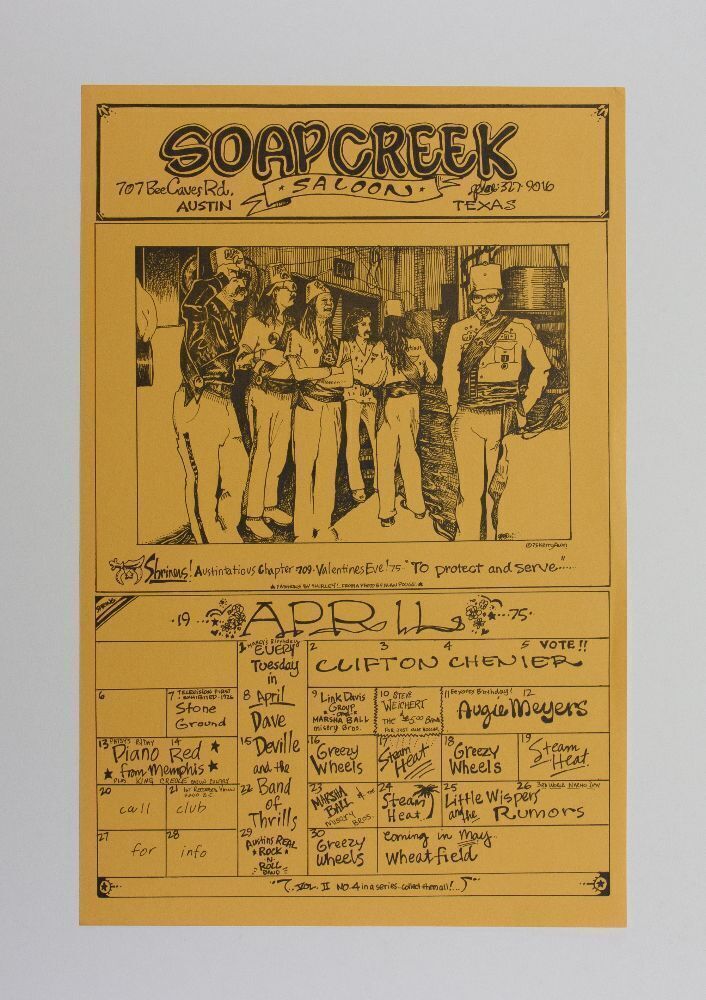 SOAP CREEK
SALOON
707 Bee Caves Rd.
AUSTIN
phone: 327-9016
TEXAS
EXIT
©75 Kerry Awn
Shriners! Austintatious Chapter 709. Valentines Eve! 75 "To protect and serve....."
★ FASHIONS BY SHIRLEY! FROM A PHOTO BY ★
·19 APRIL ·75·
1 MARCY'S Birthday
EVERY
Tuesday
in
8 April
Dave
15 Deville
and the
22 Band
of
Thrills
29
Austins REAL
ROCK
N.
ROLL
BAND
2 3 4 5 VOTE!!
CLIFTON CHENIER
6
7 TELEVISION FIRST EXHIBITED-1926
Stone
Ground
9 Link Davis
GROUP
and
MARSHA BALL
misery Bros.
10 STEVE
WEICHERT
THE $5.00 Band
FOR JUST ONE DOLLAR
11 Birthday! 12
Augie Meyers
13 14
Piano Red
★ from Memphis ★
PLUS KING CREOLE
16
Greezy
Wheels
17
Steam
Heat
18
Greezy
Wheels
19
Steam
Heat
20
call
21
club
23
MARSHA
BALL & the
misery
BROS.
24
Steam
Heat
25 26 3RD WORLD NACHO DAY
Little Wispers
and the Rumors
27
for
28
info
30
Greezy
wheels
coming in May..
wheatfield
(..VOL. II NO. 4 in a series. collect them all!...)